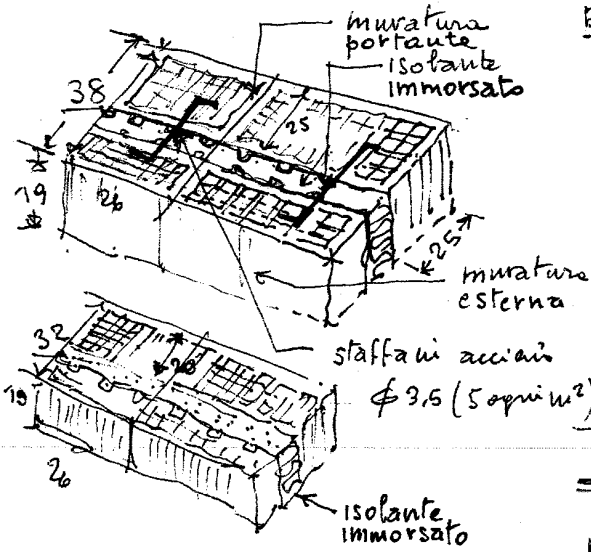 muratura
portante
isolante
immorsato
38
25
19
26
25
muratura
esterna
staffa in acciaio
ϕ 3,5 (5 ogni m²)
32
20
19
26
isolante
immorsato